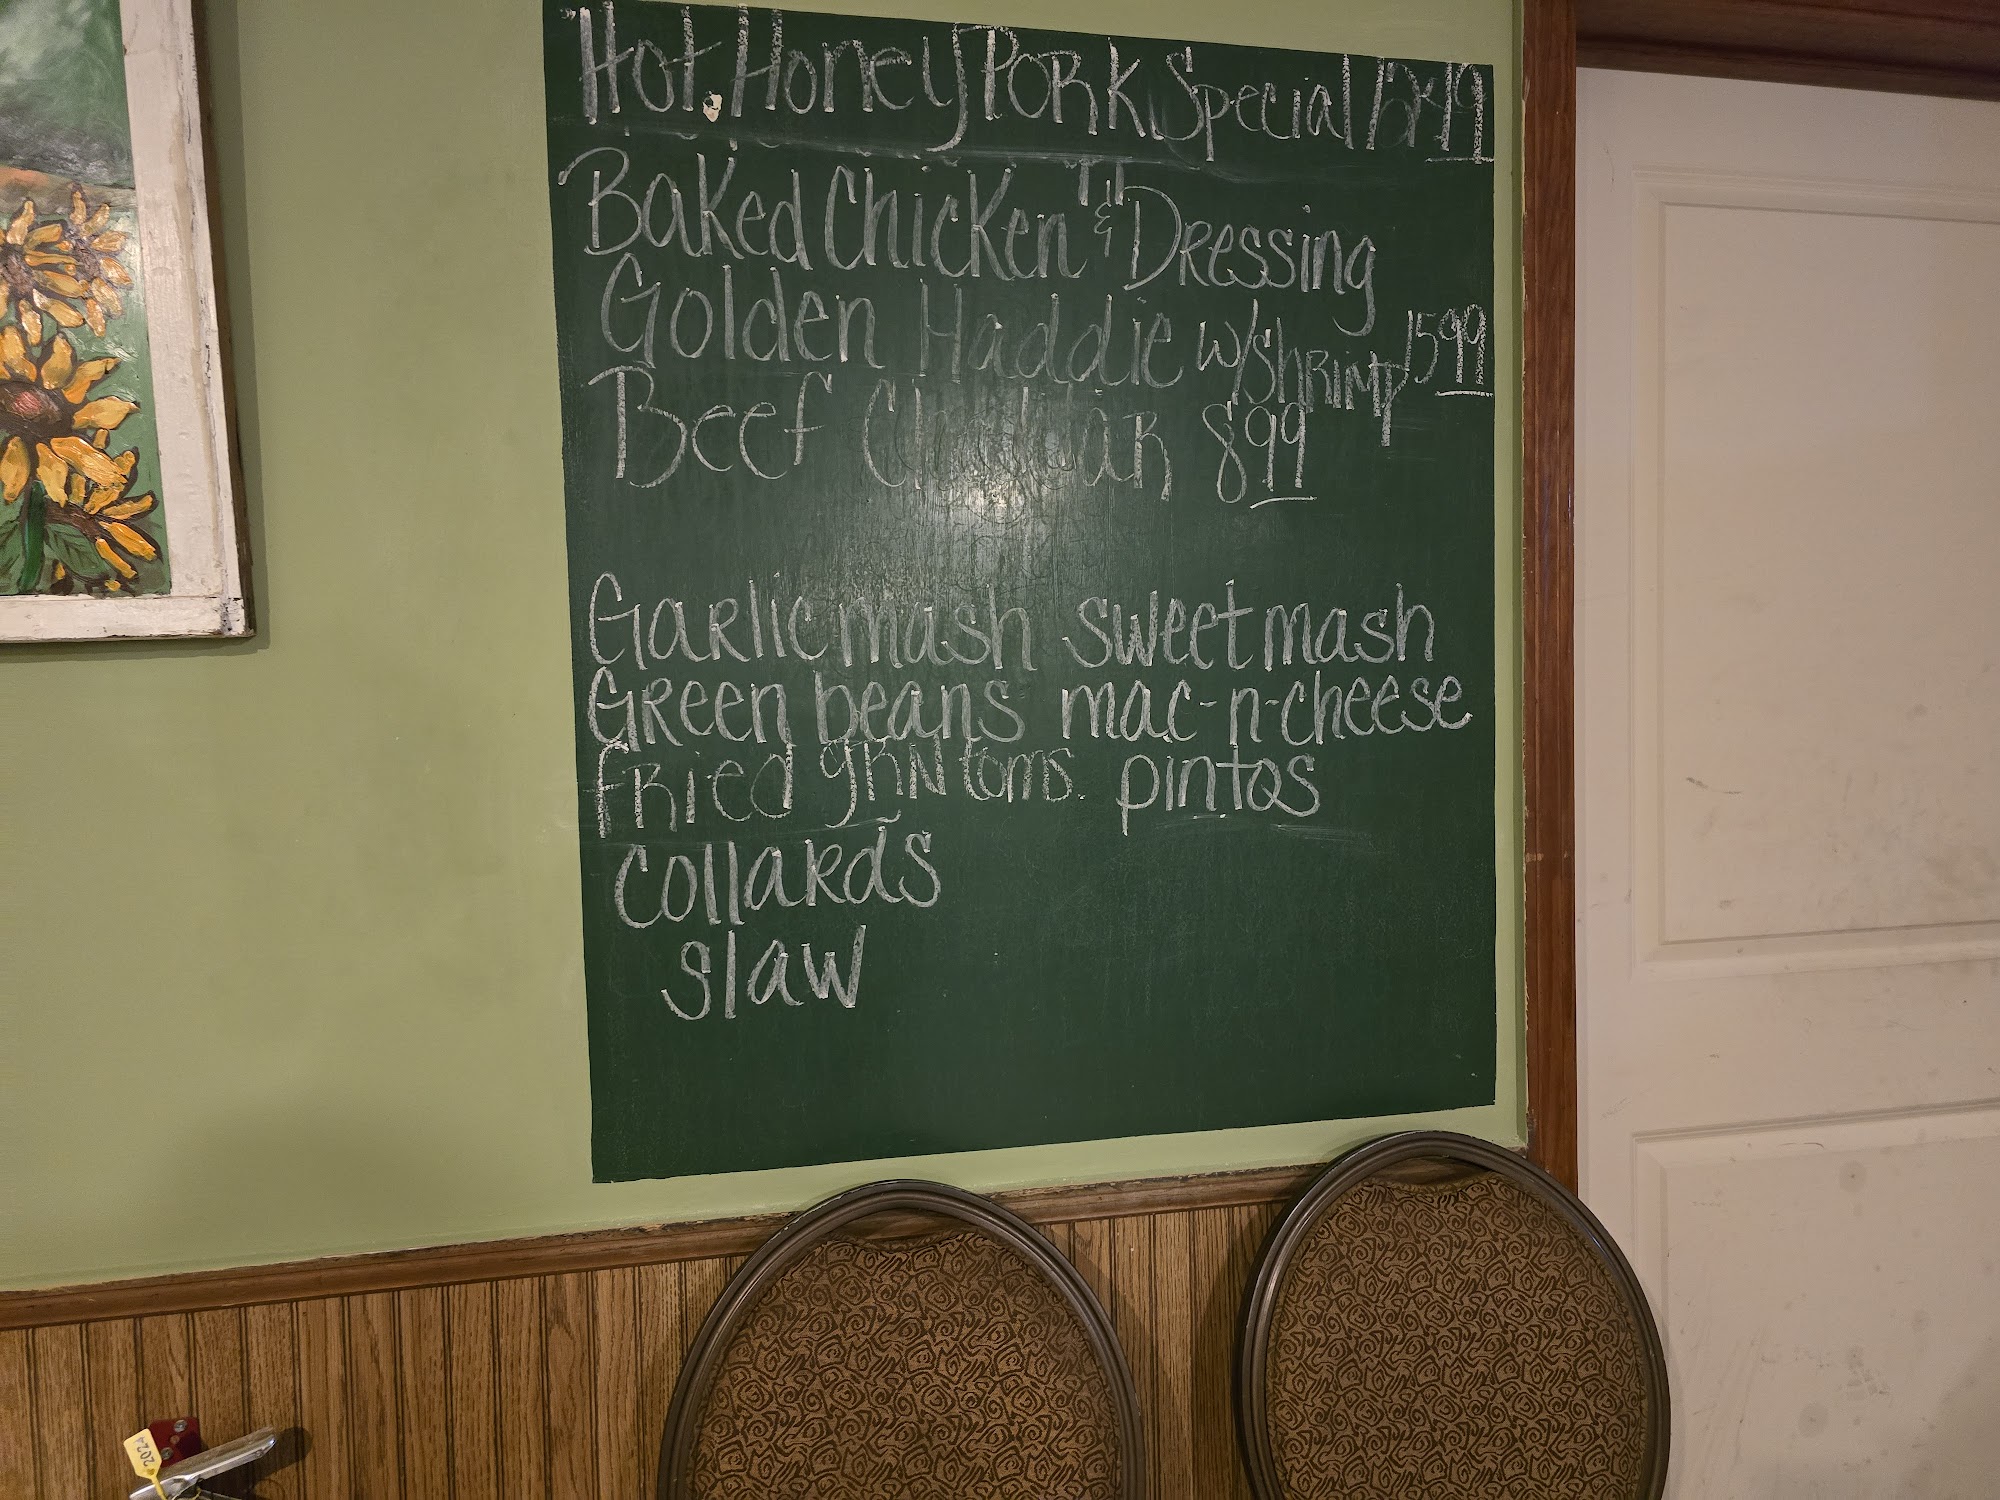 "Hot Honey Pork Special
Baked Chicken & Dressing
Golden Haddie w/shrimp 15 99
Beef 8 99
Garlic mash sweet mash
Green beans mac-n-cheese
fried grn toms. pintos
collards
slaw
2024